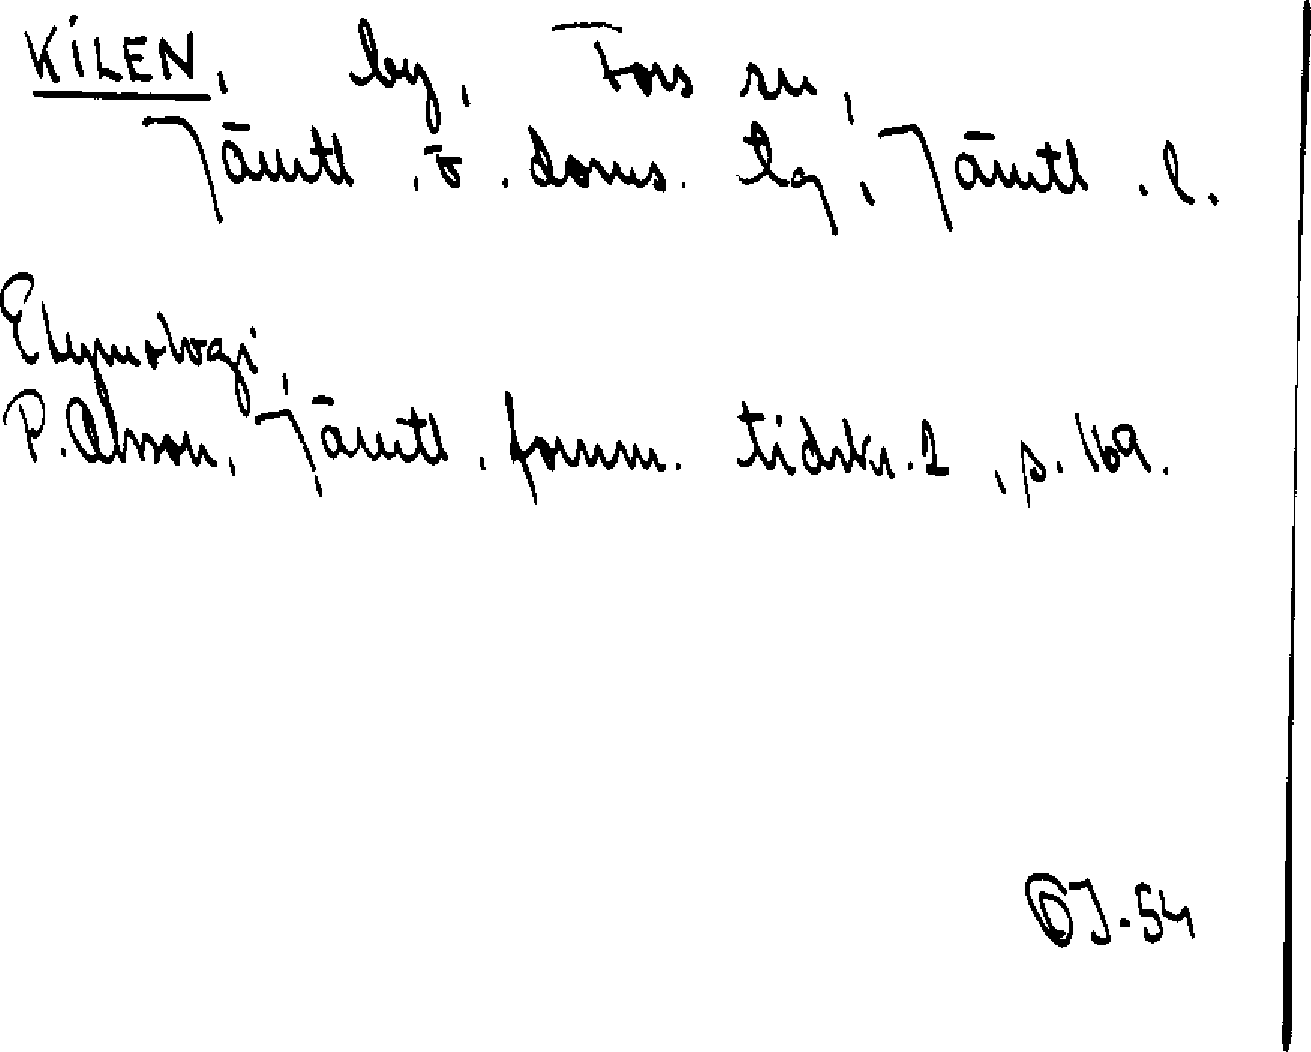 KILEN, by, Fors sn,
Jämtl. ö. doms. tg, Jämtl. l.
Etymologi,
P. Olsson, Jämtl. fornm. tidskr. 2, s. 169.
OJ-54